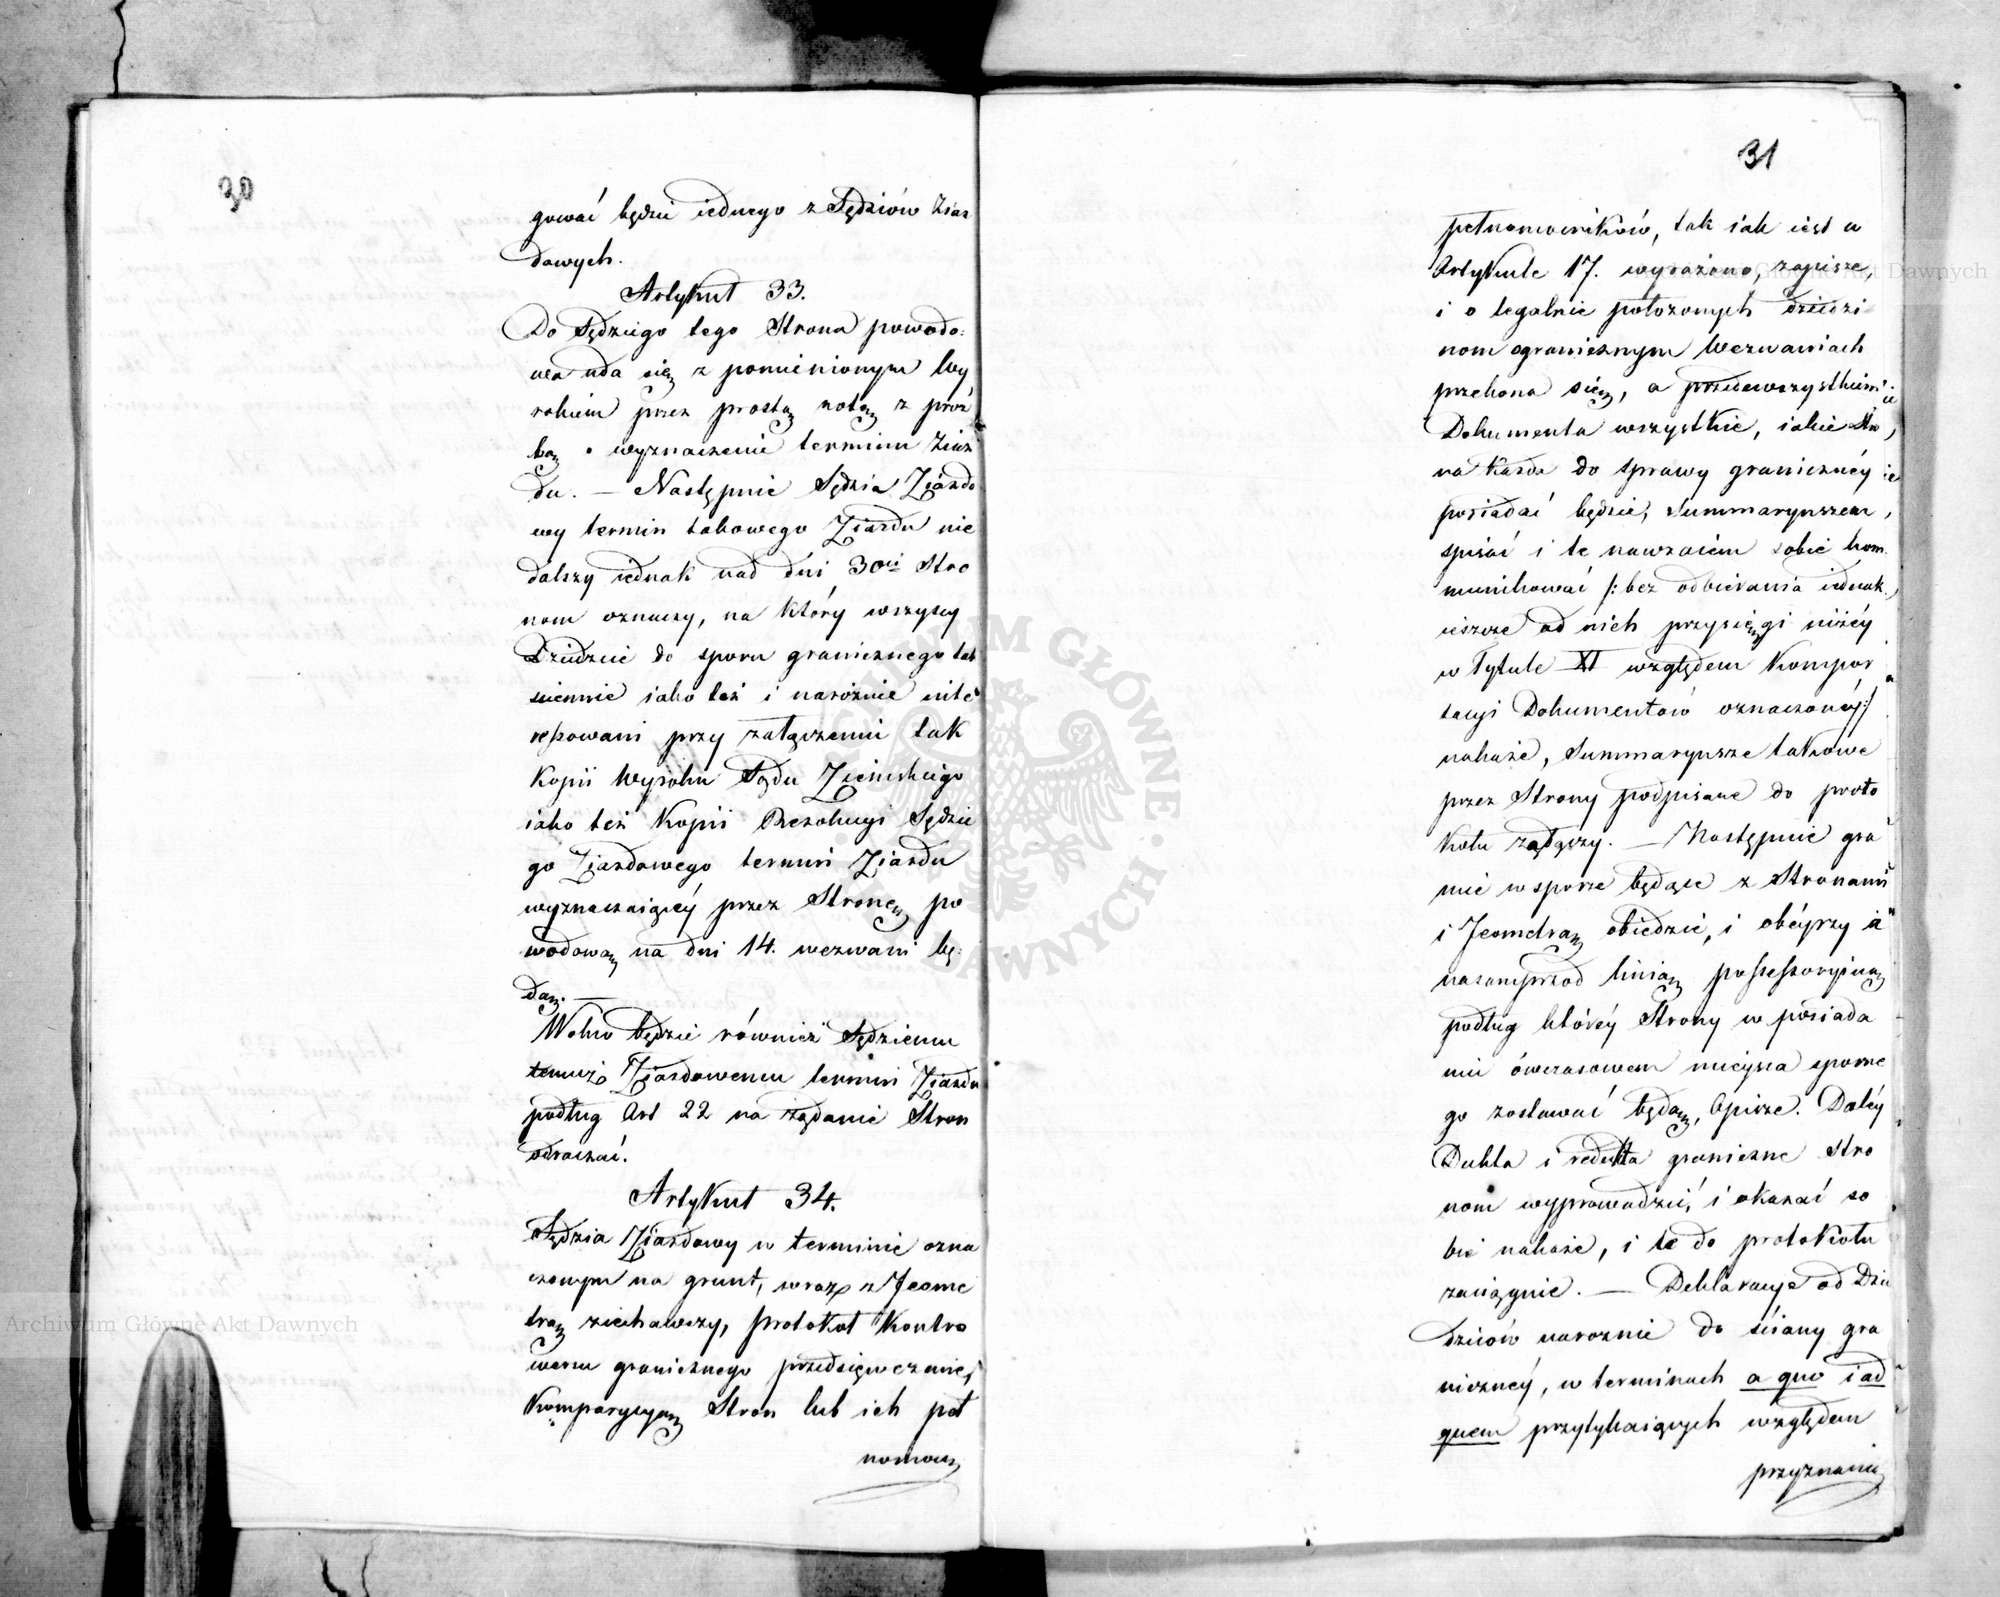 30
gować będzie iednego z Sędziów Ziaz
dowych.
Artykuł 33.
Do Sędziego tego Strona powodo:
wa uda się z pomienionym Wy
rokiem przez prostą notę z proź
bą o wyznaczenie terminu Ziaz
du. — Następnie Sędzia Zjazdo
wy termin takowego Zjazdu nie
dalszy iednak nad dni 30ci Stro
nom oznaczy, na który wszyscy
Dziedzice do sporu granicznego tak
ściennie iako też i narożnie inte
ressowani przy załączeniu tak
Kopii Wyroku Sądu Ziemskiego
iako też Kopii Rezolucyi Sędzie
go Zjazdowego termin Zjazdu
wyznaczaiącéy przez Stronę po
wodową na dni 14. wezwani bę:
dą. —
Wolno będzie również Sędziemu
temuż Zjazdowemu termin Zjazdu
podług Art 22 na żądanie Stron
odraczać.
Artykuł 34.
Sędzia Zjazdowy w terminie ozna
czonym na grunt, wraz z Jeome
trą ziechawszy, protokół Kontro
wersu granicznego przedsięweźmie,
Komparycyą Stron lub ich peł
nomoc
31
pełnomocników, tak iak iest w
Artykule 17. wyrażono, zapisze,
i o legalnie położonych dziedzi
nom ogranicznym Wezwaniach
przekona się, a przedewszystkiem
Dokumenta wszystkie, iakie Stro
na każda do sprawy granicznéy
posiadać będzie, Summaryuszem
spisać i te nawzaiem sobie kom
munikować /: bez odbierania iednak
ieszcze od nich przysięgi niżéy
w Tytule XI względem Kompor
tacyi Dokumentów oznaczonéy :/
nakaże, Summaryusze takowe
przez Strony podpisane do proto
kołu załączy. — Następnie gra
nice w sporze będące z Stronami
i Jeometrą obiedzie, i obéyrzy i
nasamprzod linią possessoryiną
podług któréy Strony w posiada
niu ówczasowem mieysca sporne
go zostawać będą, opisze. Daléy
Dukta i redukta graniczne Stro
nom wyprowadzić, i okazać so
bie nakaże, i te do protokołu
zaciągnie. — Deklaracye od Dzie
dziców narożnie do ściany gra
nicznéy, w terminach a quo i ad
quem przytykaiących względem
przyznania
Archiwum Główne Akt Dawnych
Archiwum Główne Akt Dawnych
ARCHIWUM GŁÓWNE AKT DAWNYCH